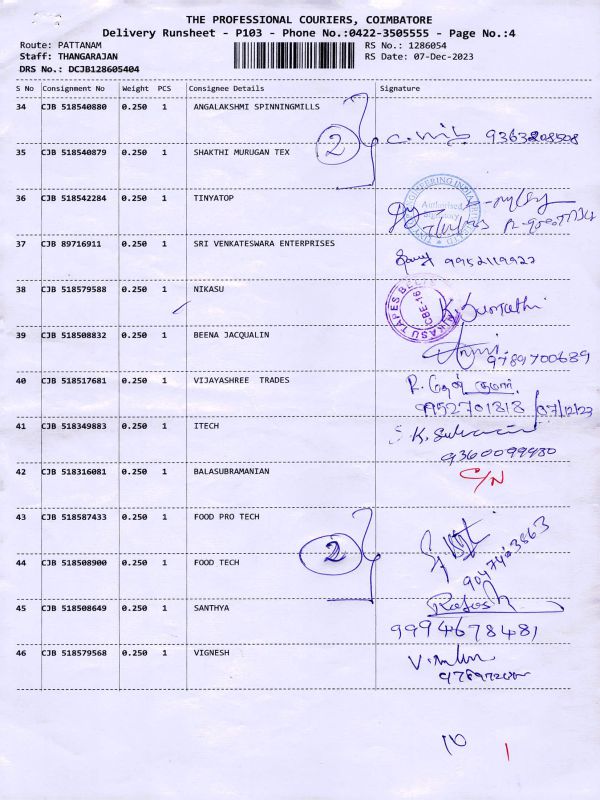 THE PROFESSIONAL COURIERS, COIMBATORE
Delivery Runsheet - P103 - Phone No.:0422-3505555 - Page No.:4
Route: PATTANAM
RS No.: 1286054
Staff: THANGARAJAN
RS Date: 07-Dec-2023
DRS No.: DCJB128605404
S No Consignment No Weight PCS Consignee Details Signature
34 CJB 518540880 0.250 1 ANGALAKSHMI SPINNINGMILLS
2
9363208508
35 CJB 518540879 0.250 1 SHAKTHI MURUGAN TEX
36 CJB 518542284 0.250 1 TINYATOP
Authorised
37 CJB 89716911 0.250 1 SRI VENKATESWARA ENTERPRISES
9952119922
38 CJB 518579588 0.250 1 NIKASU
NIKASU TAPES
39 CJB 518508832 0.250 1 BEENA JACQUALIN
9789700689
40 CJB 518517681 0.250 1 VIJAYASHREE TRADES
9952701818 07/12/23
41 CJB 518349883 0.250 1 ITECH
9360099980
42 CJB 518316081 0.250 1 BALASUBRAMANIAN
C/N
43 CJB 518587433 0.250 1 FOOD PRO TECH
2
44 CJB 518508900 0.250 1 FOOD TECH
45 CJB 518508649 0.250 1 SANTHYA
9994678481
46 CJB 518579568 0.250 1 VIGNESH
10